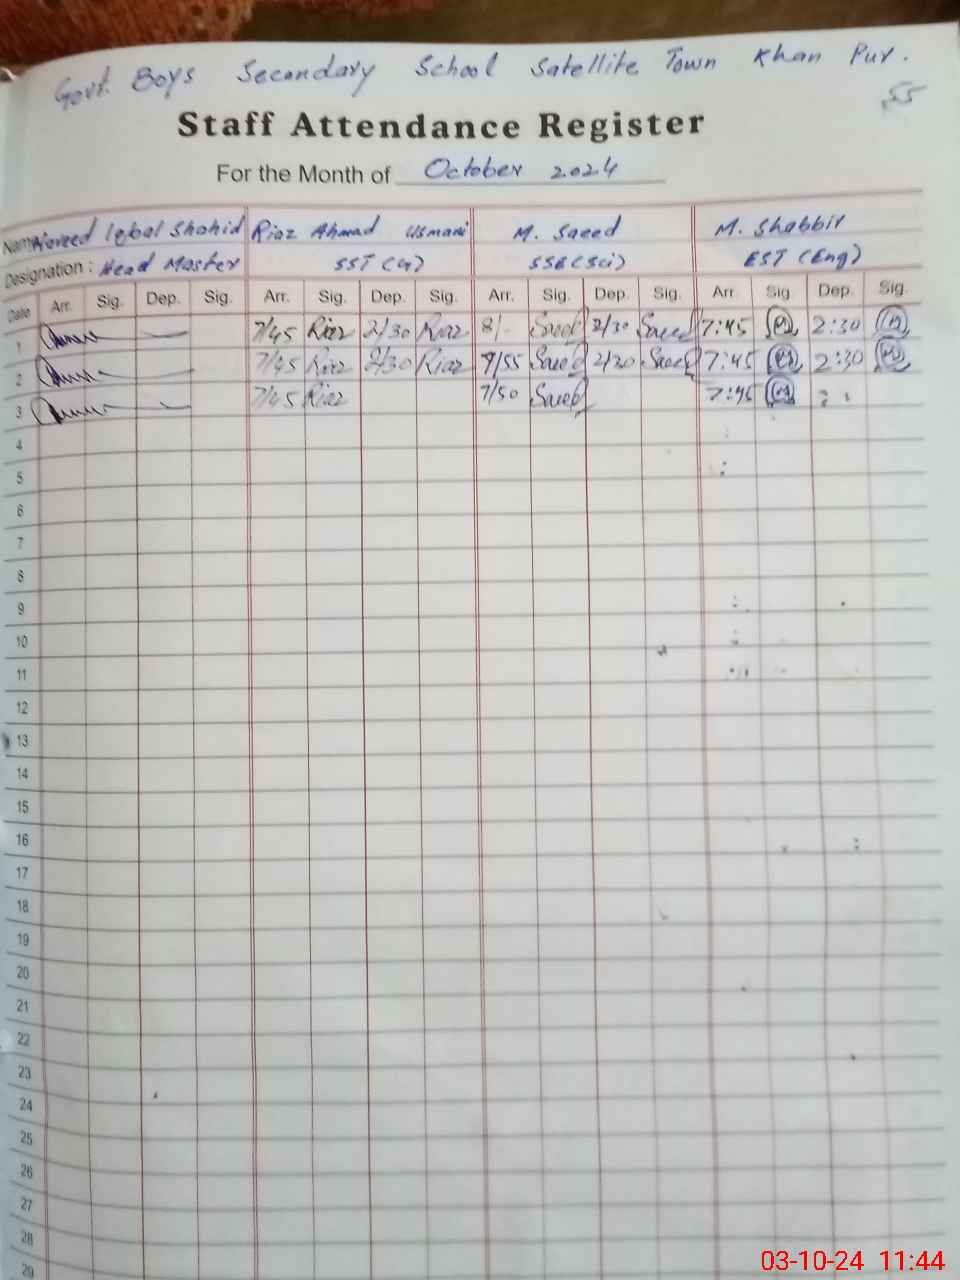 Govt. Boys Secondary School Satellite Town Khan Pur.
55
Staff Attendance Register
For the Month of October 2024
Name Naveed Iqbal Shahid Riaz Ahmad Usmani M. Saeed M. Shabbir
Designation : Head Master SST (G) SSE (Sci) EST (Eng)
Date Arr. Sig. Dep. Sig. Arr. Sig. Dep. Sig. Arr. Sig. Dep. Sig. Arr Sig Dep. Sig.
1 7/45 Riaz 2/30 Riaz 8/- Saeed 2/30 Saeed 7:45 2:30
2 7/45 Riaz 2/30 Riaz 7/55 Saeed 2/30 Saeed 7:45 2:30
3 7/45 Riaz 7/50 Saeed 7:45
4
5
6
7
8
9
10
11
12
13
14
15
16
17
18
19
20
21
22
23
24
25
26
27
28
29
03-10-24 11:44